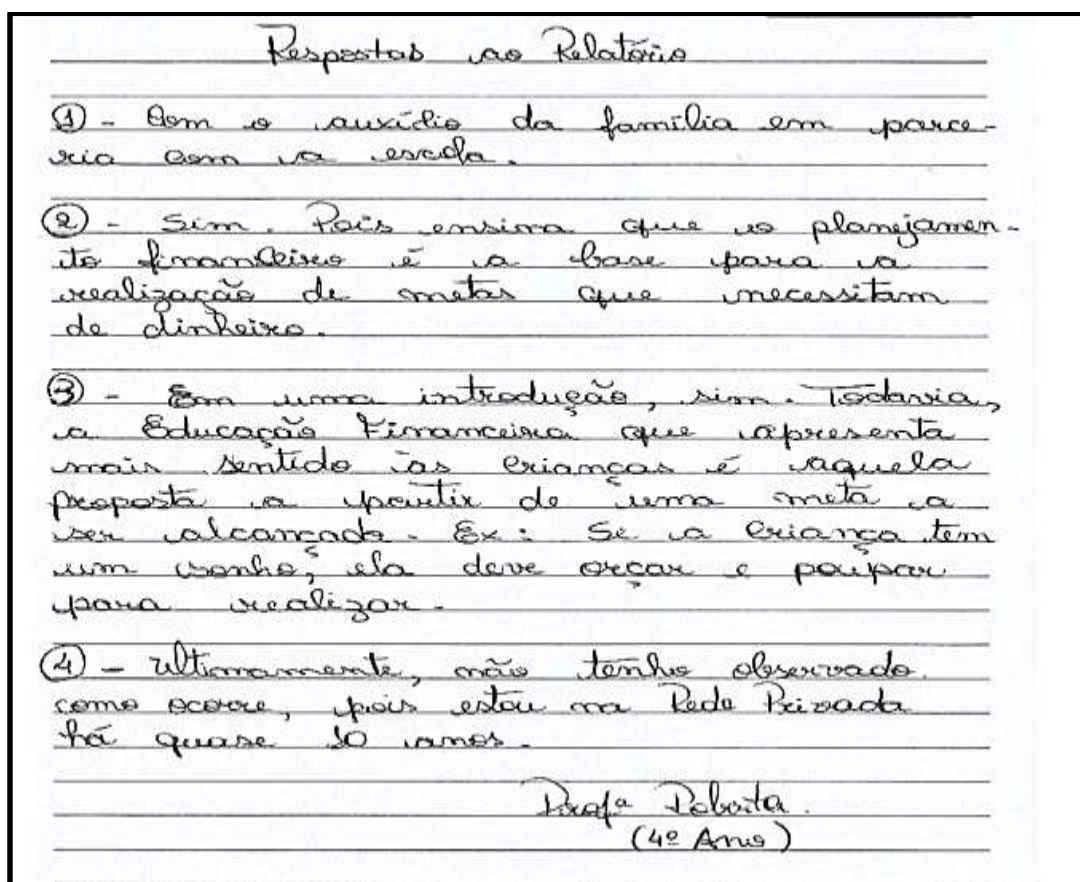 Respostas ao Relatório
① - Com o auxídio da família em parce-
ria com a escola.
② - Sim. Pois ensina que o planejamen-
to financeiro é a base para a
realização de metas que necessitam
de dinheiro.
③ - Em uma introdução, sim. Todavia,
a Educação Financeira que apresenta
mais sentido às crianças é aquela
proposta a partir de uma meta a
ser alcançada. Ex: Se a criança tem
um sonho, ela deve orçar e poupar
para realizar.
④ - Ultimamente, não tenho observado
como ocorre, pois estou na Rede Privada
há quase 10 anos.
Profª Roberta.
(4º Ano)